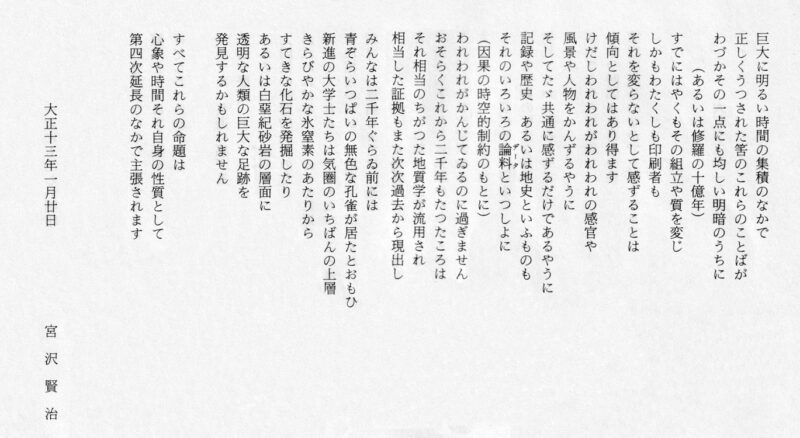 巨大に明るい時間の集積のなかで
正しくうつされた筈のこれらのことばが
わづかその一点にも均しい明暗のうちに
（あるいは修羅の十億年）
すでにはやくもその組立や質を変じ
しかもわたくしも印刷者も
それを変らないとして感ずることは
傾向としてはあり得ます
けだしわれわれがわれわれの感官や
風景や人物をかんずるやうに
そしてたゞ共通に感ずるだけであるやうに
記録や歴史　あるいは地史といふものも
それのいろいろの論料データといつしよに
（因果の時空的制約のもとに）
われわれがかんじてゐるのに過ぎません
おそらくこれから二千年もたつたころは
それ相当のちがつた地質学が流用され
相当した証拠もまた次次過去から現出し
みんなは二千年ぐらゐ前には
青ぞらいつぱいの無色な孔雀が居たとおもひ
新進の大学士たちは気圏のいちばんの上層
きらびやかな氷窒素のあたりから
すてきな化石を発掘したり
あるいは白堊紀砂岩の層面に
透明な人類の巨大な足跡を
発見するかもしれません
すべてこれらの命題は
心象や時間それ自身の性質として
第四次延長のなかで主張されます
大正十三年一月廿日　宮沢賢治